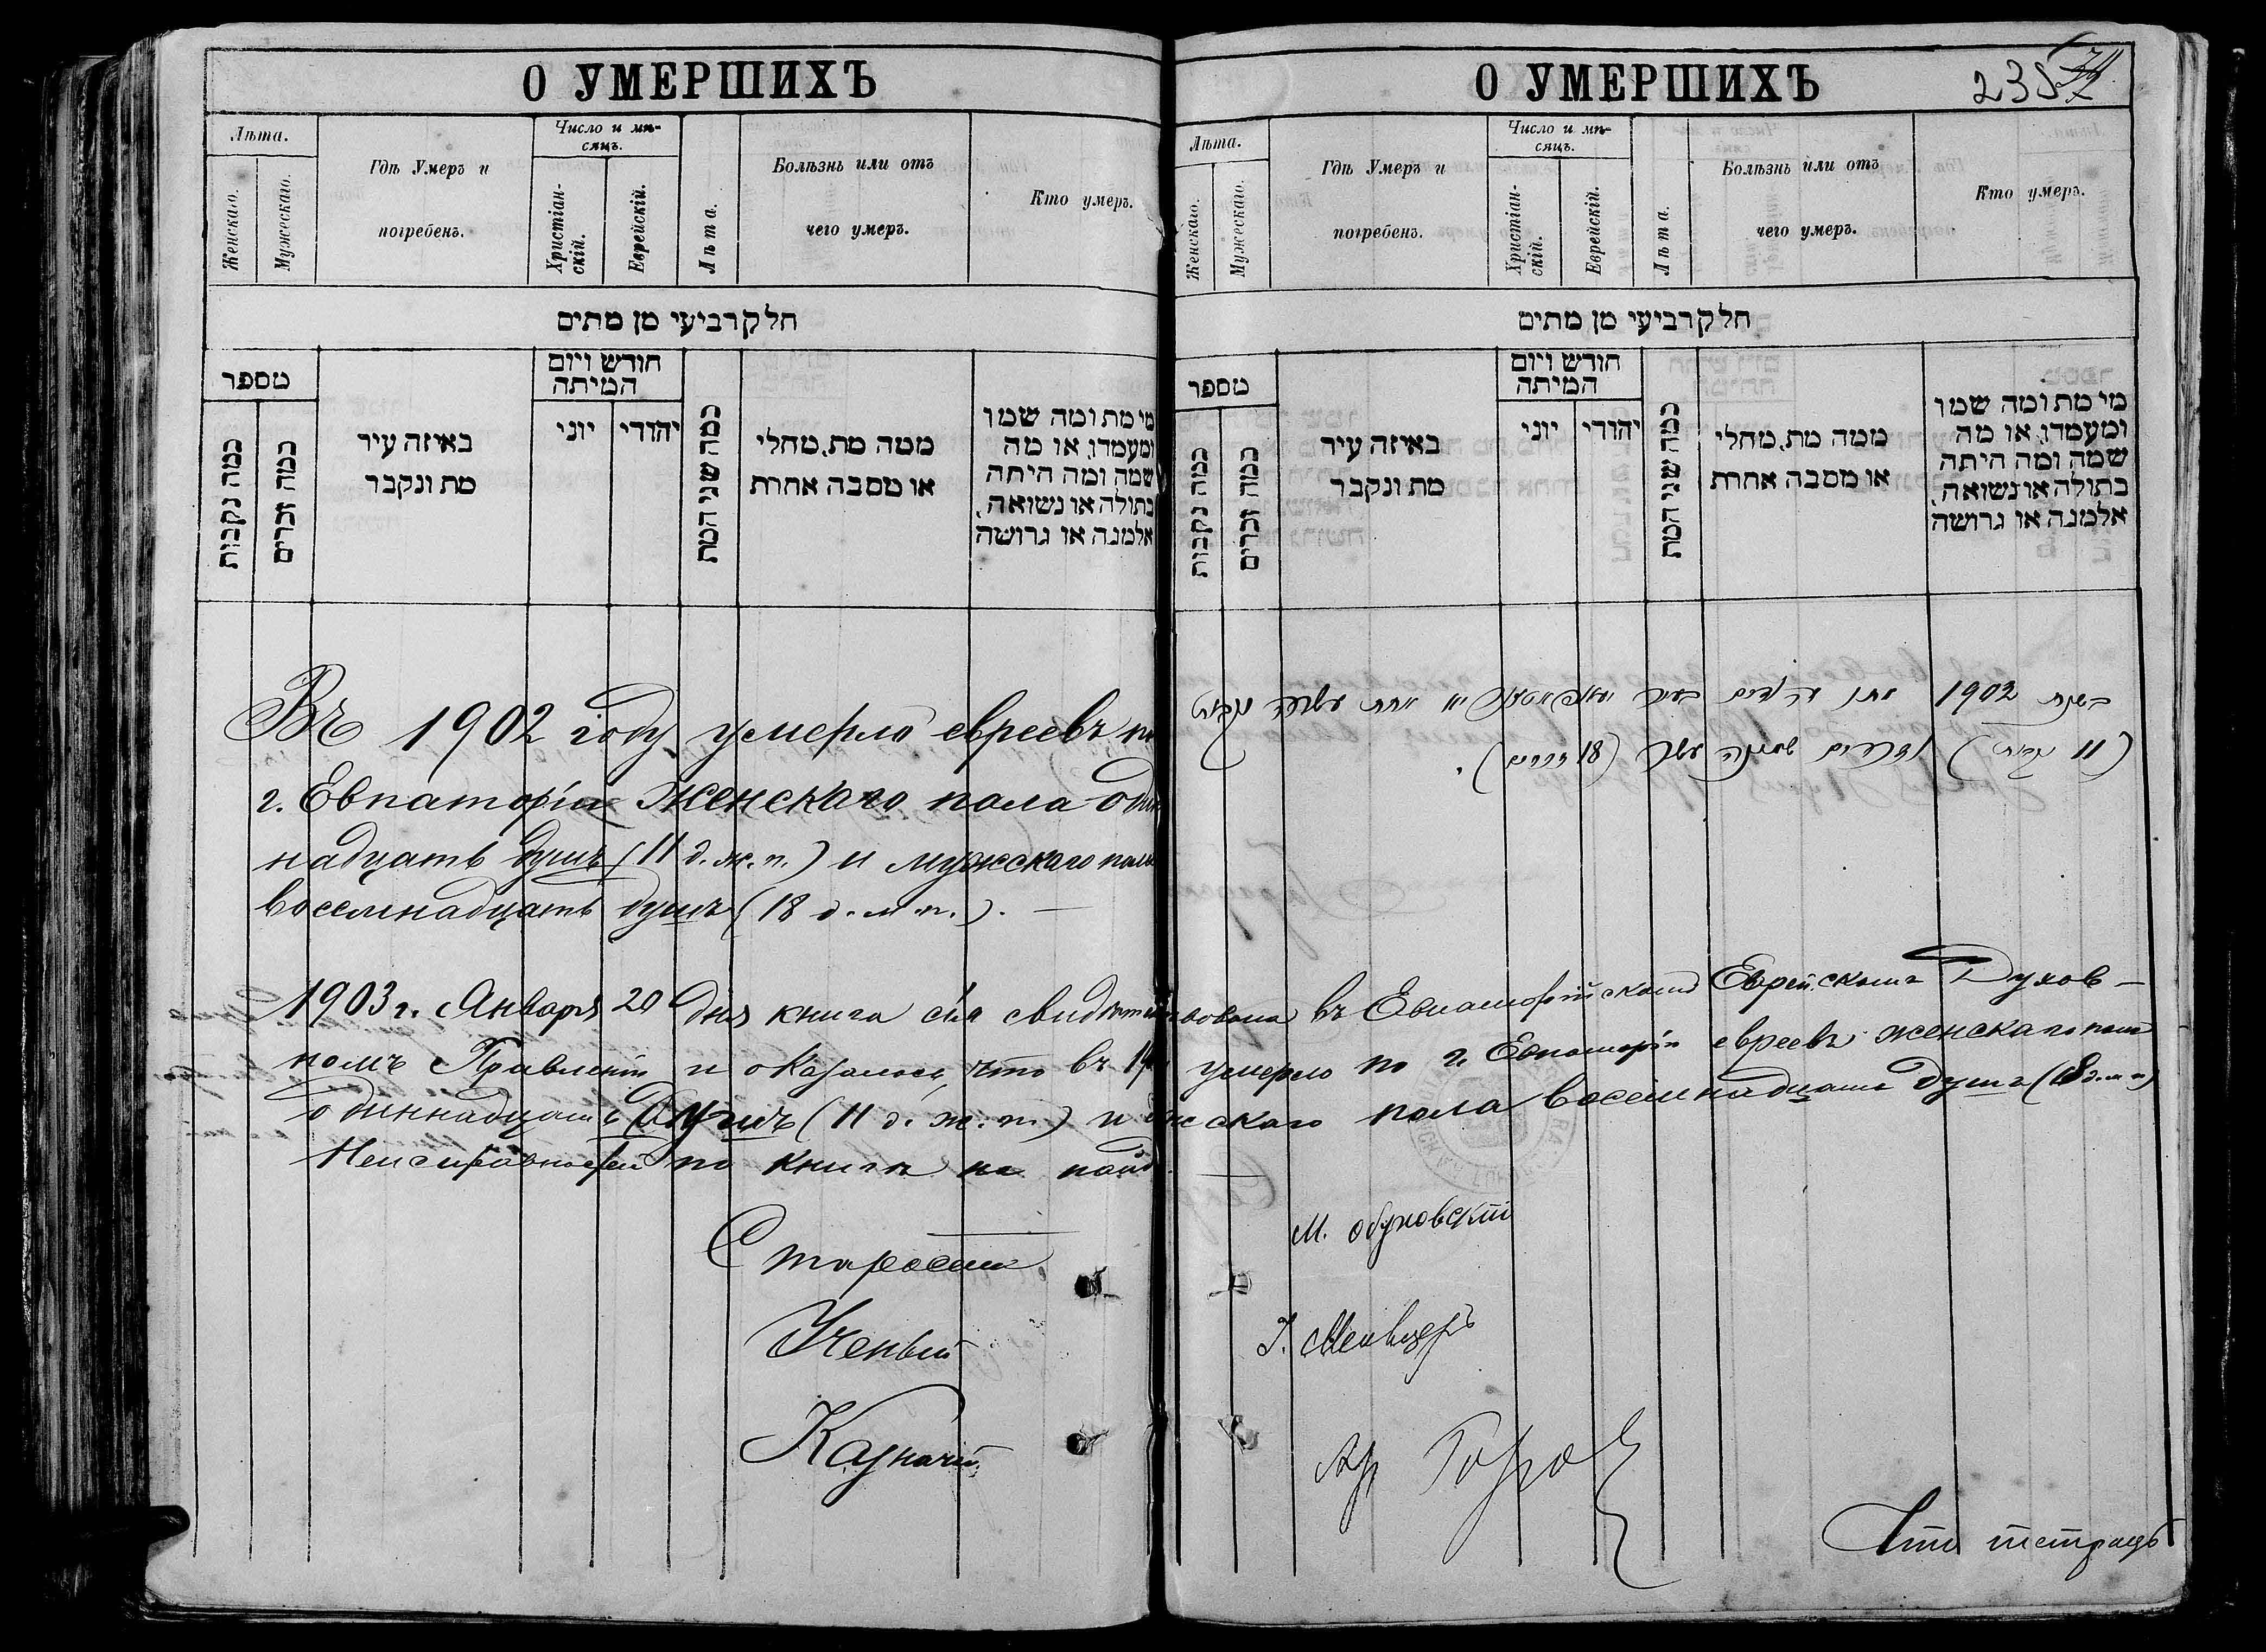 О УМЕРШИХЪ
Лѣта.
Женскаго.
Мужескаго.
Гдѣ Умеръ и
погребенъ.
Число и мѣ-
сяцъ.
Христіан-
скій.
Еврейскій.
Лѣта.
Болѣзнь или отъ
чего умеръ.
Кто умеръ.
חלק רביעי מן מתים
מספר
כמה נקבות
כמה זכרים
באיזה עיר
מת ונקבר
חודש ויום
המיתה
יוני
יהודי
כמה שני המת
ממה מת, מחלי
או מסבה אחרת
מי מת ומה שמו
ומעמדו, או מה
שמה ומה היתה
בתולה או נשואה,
אלמנה או גרושה
Въ 1902 году умерло евреевъ по
г. Евпаторіи женскаго пола один
надцать душъ (11 д. ж. п.) и мужскаго пола
восемнадцать душъ (18 д. м. п.). —
О УМЕРШИХЪ
235
Лѣта.
Женскаго.
Мужескаго.
Гдѣ Умеръ и
погребенъ.
Число и мѣ-
сяцъ.
Христіан-
скій.
Еврейскій.
Лѣта.
Болѣзнь или отъ
чего умеръ.
Кто умеръ.
חלק רביעי מן מתים
מספר
כמה נקבות
כמה זכרים
באיזה עיר
מת ונקבר
חודש ויום
המיתה
יוני
יהודי
כמה שני המת
ממה מת, מחלי
או מסבה אחרת
מי מת ומה שמו
ומעמדו, או מה
שמה ומה היתה
בתולה או נשואה,
אלמנה או גרושה
בשנת 1902 אחת עשרה נקבות
(11 נקבות) וזכרים שמונה עשר (18 זכרים).
1903 г. Января 20 дня книга сія свидѣтельствована въ Евпаторійскомъ Еврейскомъ Духов-
номъ Правленіи и оказалось, что въ 19 умерло по г. Евпаторіи евреевъ женскаго пола
одиннадцать душъ (11 д. ж. п.) и скаго пола восемнадцать душъ (18 д. м. п.)
Неисправностей по книгѣ не найд
Староста М. Обуховскій
Ученый
Казначей
тетрадь